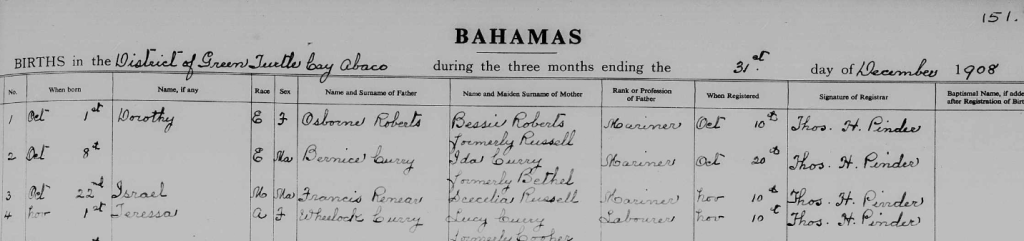 151.
BAHAMAS
BIRTHS in the District of Green Turtle Cay Abaco during the three months ending the 31st day of December 1908
No. When born Name, if any Race Sex Name and Surname of Father Name and Maiden Surname of Mother Rank or Profession of Father When Registered Signature of Registrar Baptismal Name, if added after Registration of Birth
1 Oct 1st Dorothy E F Osborne Roberts Bessie Roberts Mariner Oct 10th Thos. H. Pinder
formerly Russell
2 Oct 8th E Ma Bernice Curry Ida Curry Mariner Oct 20th Thos. H. Pinder
formerly Bethel
3 Oct 22nd Israel M Ma Francis Renear Scecelia Russell Mariner Nov 10th Thos. H. Pinder
4 Nov 1st Teressa A F Wheelock Curry Lucy Curry Labourer Nov 10th Thos. H. Pinder
formerly Cooper